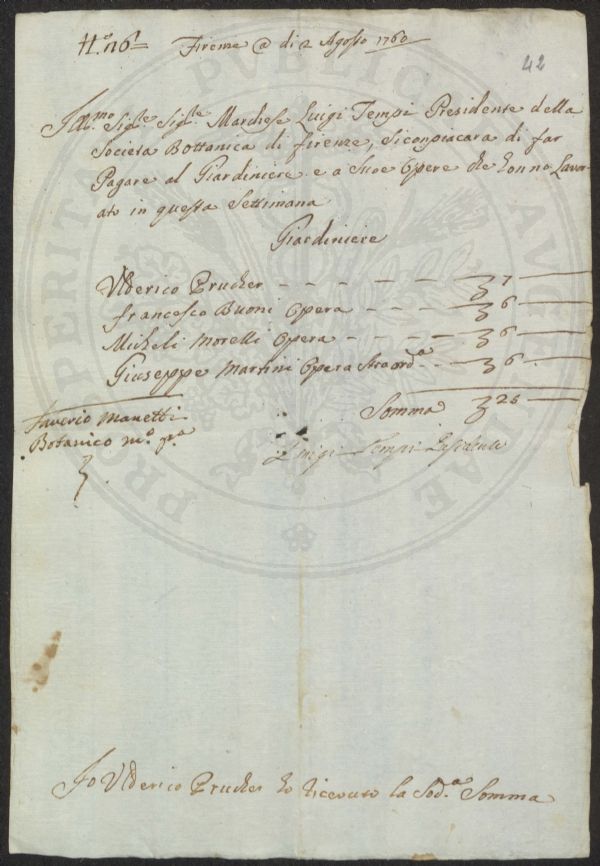 N.º 116
Firenze @ di 2 Agosto 1760
42
Ill.mo Sig.re Sig.re Marchese Luigi Tempi Presidente della
Societa Bottanica di firenze, si conpiacara di far
Pagare al Giardiniere e a Suoe Opere che Lonno Lavor-
ato in questa Settimana
Giardiniere
Ulderico Prucher - - - - - - 7
francesco Buoni Opera - - - - 6
Micheli Morelli Opera - - - - 6
Giuseppe Martini Opera Straord.a - - 6
Somma 25
Saverio Manetti
Botanico m.o p.a
Luigi Tempi Presidente
Io Ulderico Prucher ho ricevuto la Sod.a Somma
PROSPERITATI PUBLICAE AUGENDAE